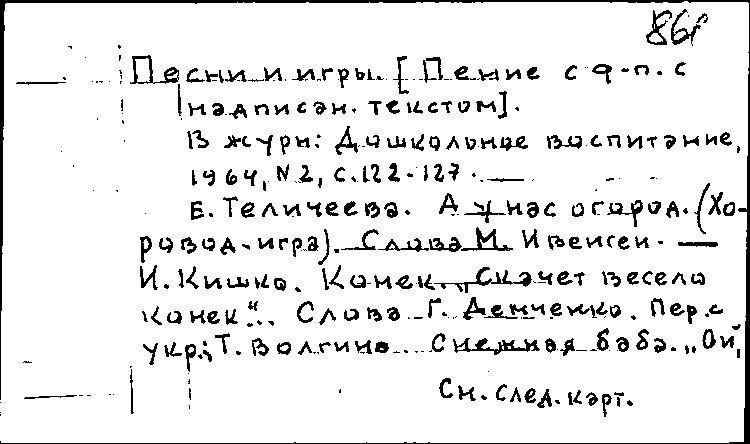 861
Песни и игры. [Пение с ф-п. с
надписан. текстом].
В журн: Дошкольное воспитание,
1964, N2, с.122-127. —
Е. Теличеева. А у нас огород. (Хо-
ровод-игра). Слова М. Ивенсен. —
И. Кишко. Конек. „Скачет весело
конек“... Слова Г. Демченко. Пер. с
укр.; Т. Волгина. Снежная баба. „Ой,
См. след. карт.